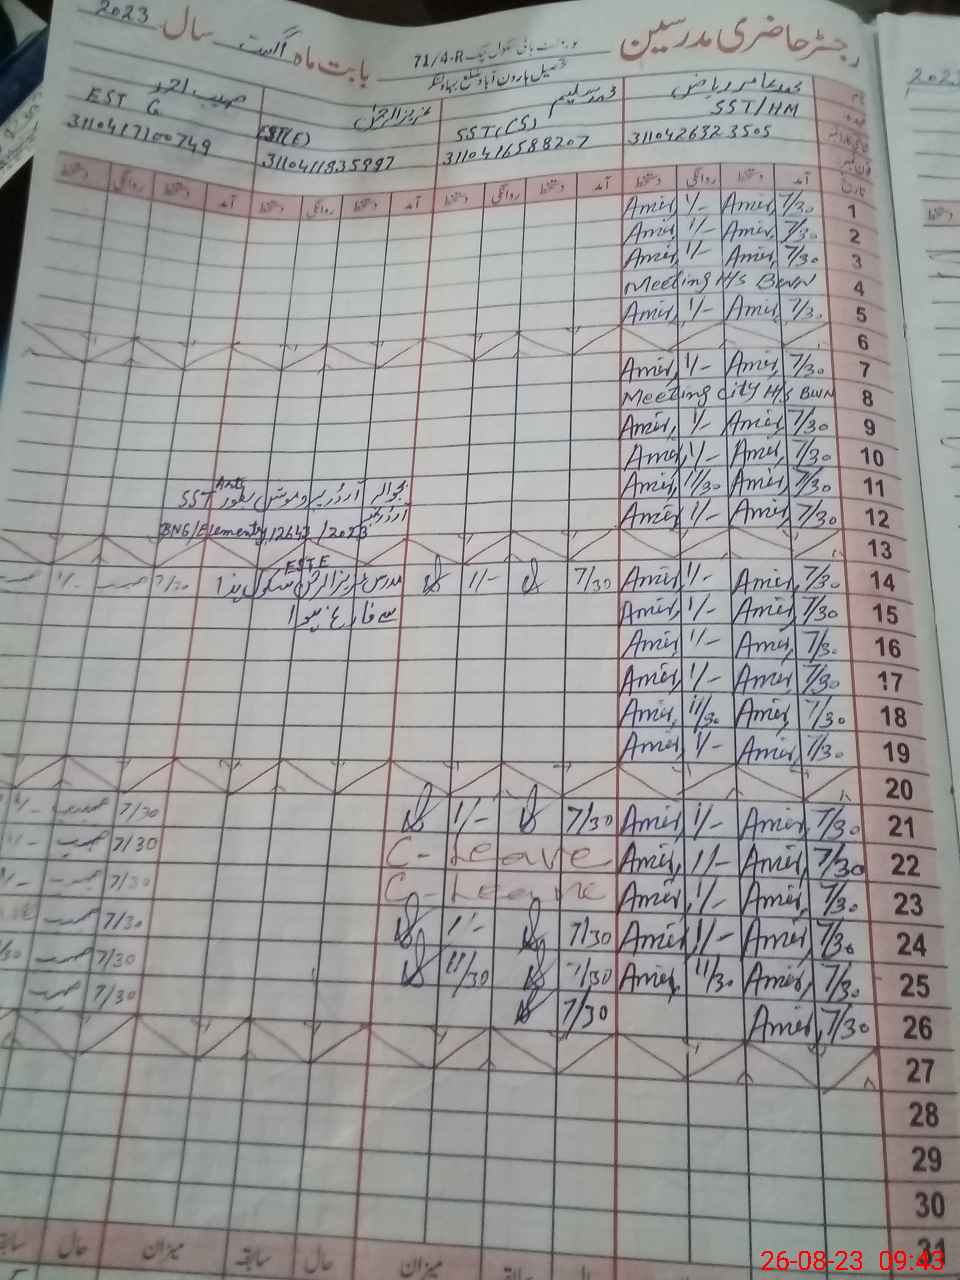 رجسٹر حاضری مدرسین
گورنمنٹ ہائی سکول چک 71/4-R
تحصیل ہارون آباد ضلع بہاولنگر
بابت ماہ اگست سال 2023
محمد عامر ریاض محمد سلیم عزیز الرحمٰن صہیب احمد
SST/HM SST(CS) EST(E) EST G
3110426323505 3110416588207 3110411835997 3110417100749
تاریخ آمد دستخط روانگی دستخط آمد دستخط روانگی دستخط آمد دستخط روانگی دستخط آمد دستخط روانگی دستخط
1 7/30 Amir 1/- Amir
2 7/30 Amir 1/- Amir
3 7/30 Amir 1/- Amir
4 Meeting H/S BWN
5 7/30 Amir 1/- Amir
6
7 7/30 Amir 1/- Amir
8 Meeting City H/S BWN
9 7/30 Amir 1/- Amir
10 7/30 Amir 1/- Amir
11 7/30 Amir 11/30 Amir بحوالہ آرڈر پروموشن بطور SST Arts
12 7/30 Amir 1/- Amir آرڈر نمبر BNG/Elementy 12643/2023
13
14 7/30 Amir 1/- Amir 7/30 1/- مدرس عزیز الرحمٰن ESTE سکول ہذا 7/30 1/-
15 7/30 Amir 1/- Amir سے فارغ ہوا
16 7/30 Amir 1/- Amir
17 7/30 Amir 1/- Amir
18 7/30 Amir 11/30 Amir
19 7/30 Amir 1/- Amir
20
21 7/30 Amir 1/- Amir 7/30 1/- 7/30 1/-
22 7/30 Amir 1/- Amir C-Leave 7/30
23 7/30 Amir 1/- Amir C-Leave 7/30
24 7/30 Amir 1/- Amir 7/30 1/- 7/30
25 7/30 Amir 11/30 Amir 7/30 11/30 7/30
26 7/30 Amir 7/30 7/30
27
28
29
30
31
میزان سابقہ حال میزان سابقہ حال
26-08-23 09:43